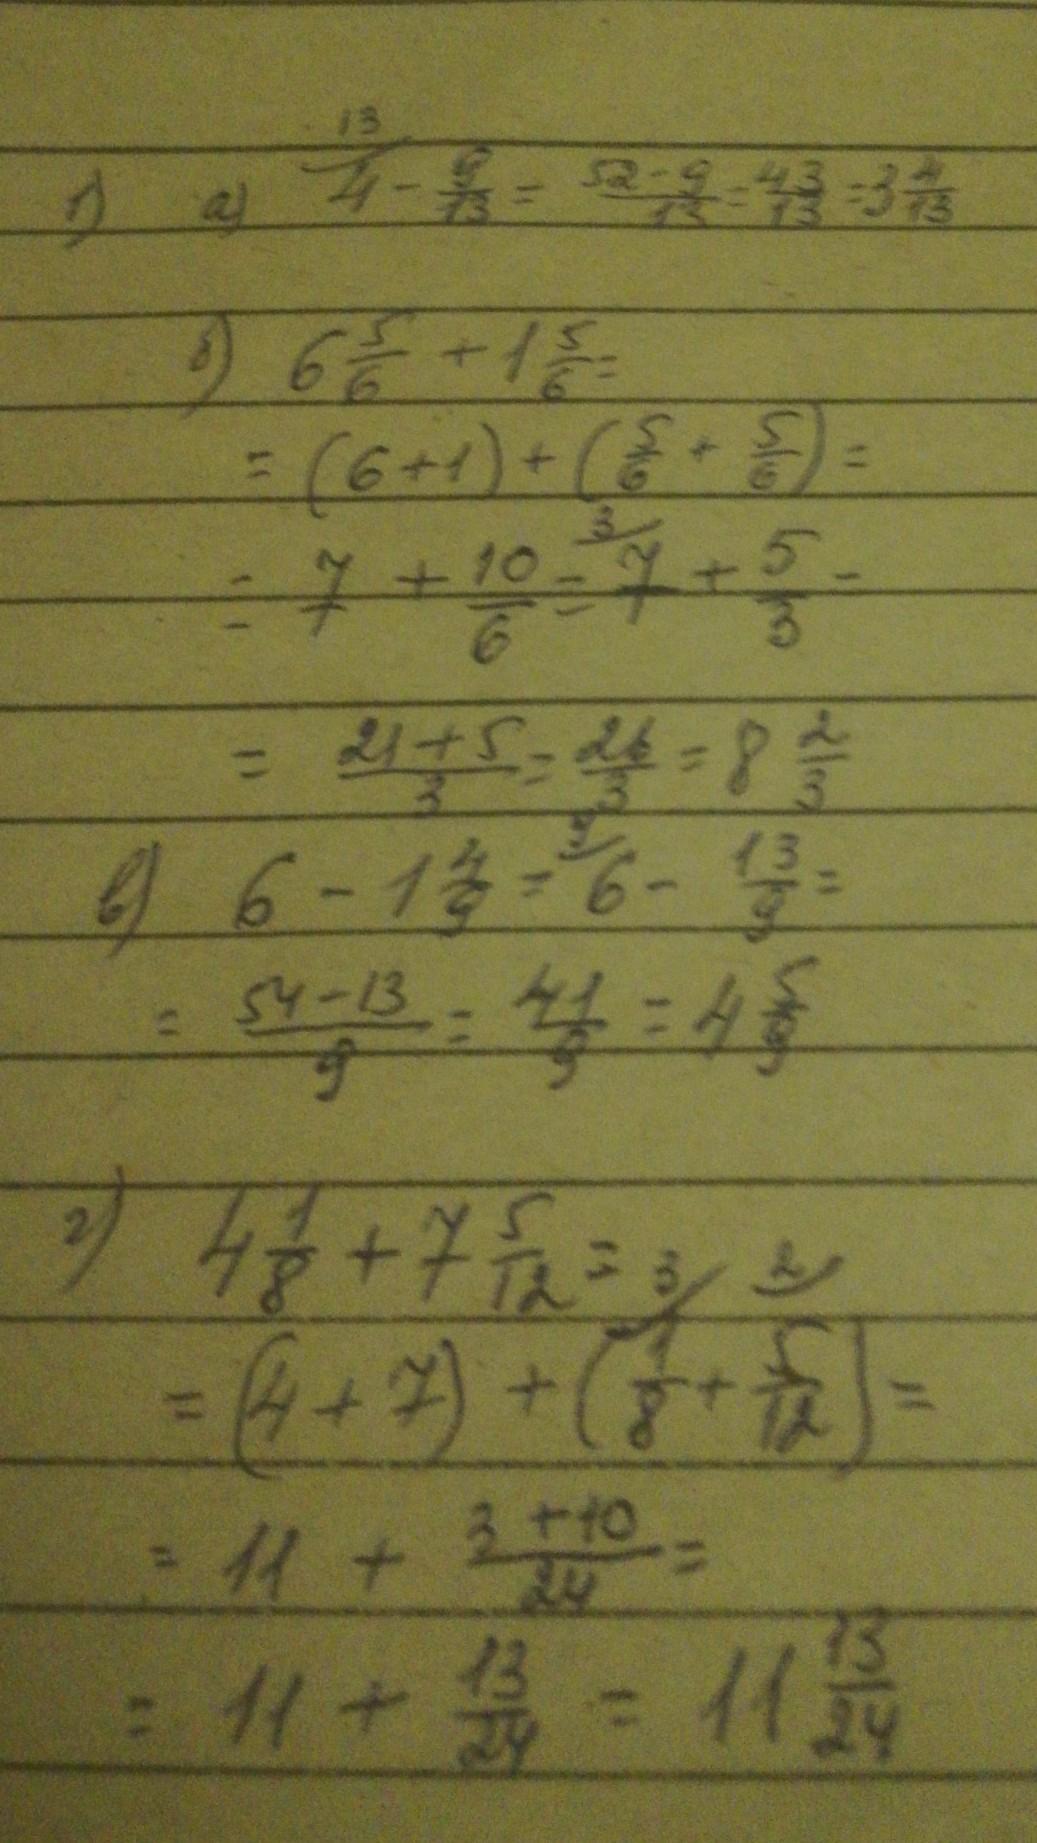 1) а) ¹³/4 - 9/13 = (52-9)/13 = 43/13 = 3 4/13
б) 6 5/6 + 1 5/6 =
= (6+1) + (5/6 + 5/6) =
= 7 + 10/6 = ³/7 + 5/3 =
= (21+5)/3 = 26/3 = 8 2/3
в) 6 - 1 4/9 = ⁹/6 - 13/9 =
= (54-13)/9 = 41/9 = 4 5/9
г) 4 1/8 + 7 5/12 =
= (4 + 7) + (³/1/8 + ²/5/12) =
= 11 + (3+10)/24 =
= 11 + 13/24 = 11 13/24